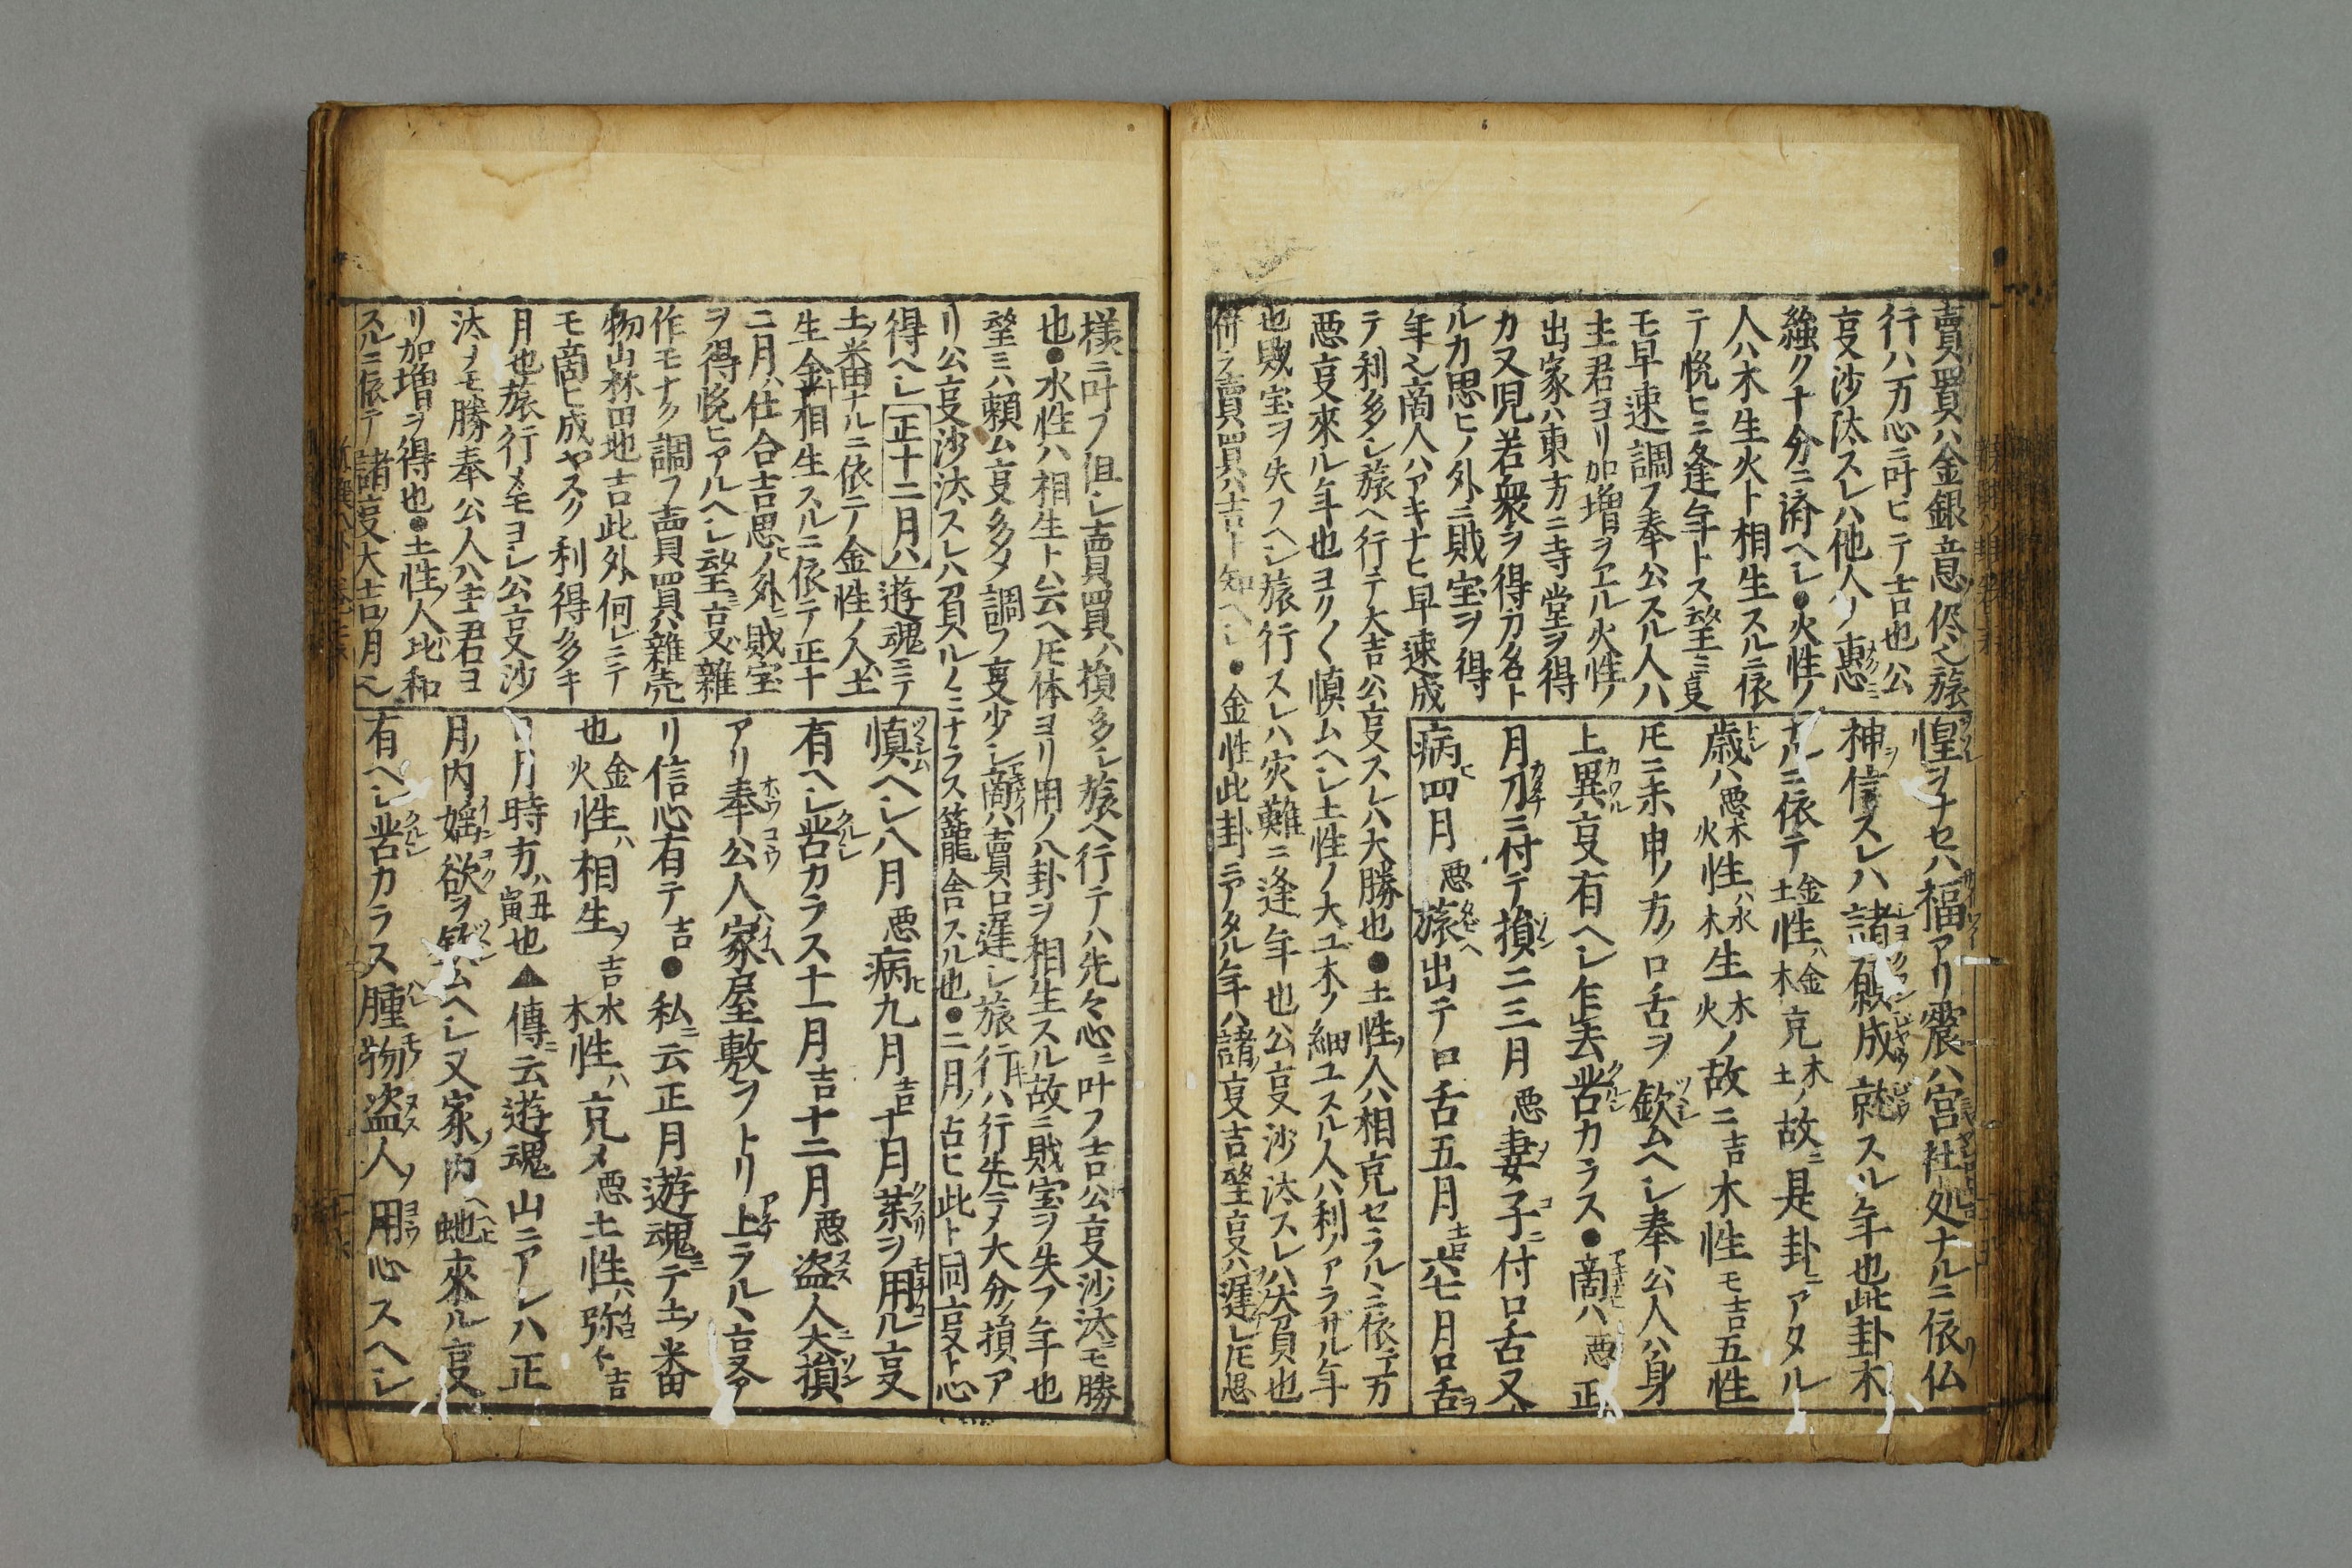 賣買ハ金銀意ノ侭也旅
行ハ万心ニ叶ヒテ吉也公
事沙汰スレハ他人ノ惠
強ク十分ニ済ヘシ●火性ノ
人ハ木生火ト相生スルニ依
テ悦ヒニ逢年トス望ミ事
モ早速調フ奉公スル人ハ
主君ヨリ加増ヲエル火性ノ
出家ハ東方ニ寺堂ヲ得
カ又児若衆ヲ得カ名ト
ルカ思ヒノ外ニ財宝ヲ得
年也商人ハアキナヒ早速成
惶ヲナセハ福アリ震ハ宮社処ナルニ依仏
神信スレハ諸願成就スル年也此卦木
ナルニ依テ金土性ハ金木克木土ノ故ニ是卦ニアタル
歳ハ悪木火性ハ水木生木火ノ故ニ吉木性モ吉五性
上異事有ヘシ
月刀ニ付テ損二三月悪妻子ニ付口舌又
病四月悪旅ヘ出テ口舌五月吉六七月口舌
テ利多シ旅ヘ行テ大吉公事スレハ大勝也●土性ノ人ハ相克セラルヽニ依テ万
悪事來ル年也ヨク〱慎ムヘシ土性ノ大工木ノ細工スル人ハ利ノアラサル年
也財宝ヲ失フヘシ旅行スレハ災難ニ逢年也公事沙汰スレハ大負也
併ラ賣買ハ吉ト知ヘシ●金性此卦ニアタル年ハ諸事吉望事ハ遅シ
様ニ叶フ但シ賣買ハ損多シ旅ヘ行テハ先々心ニ叶フ吉公事沙汰モ勝
也●水性ハ相生ト云ヘ𪜈体ヨリ用ノ八卦ヲ相生スル故ニ財宝ヲ失フ年也
望ミハ頼ム事多メ調フ事少シ商ハ賣口遅シ旅行ハ行先ニメ大分ノ損ア
リ公事沙汰スレハ負ルノミナラス籠舎スル也●二月ノ占ヒ此ト同事ト心
得ヘシ正十二月ハ遊魂ニテ
土ノ番ナルニ依テ金性ノ人ハ土
生金ト相生スルニ依テ正十
二月ハ仕合吉思ヒノ外ニ財宝
ヲ得悦ヒアルヘシ望ミ事ハ雑
作モナク調フ賣買ハ雑売
物山林田地吉此外何ニテ
モ商ヒ成ヤスク利得多キ
月也旅行メモヨシ公事沙
汰ヲモ勝奉公人ハ主君ヨ
リ加増ヲ得也●土性ノ人比和
スルニ依テ諸事大吉ノ月也
慎ヘシ八月悪病九月吉十月薬ヲ用ル事
有ヘシ苦カラス十一月吉十二月悪盗人大ニ損
アリ奉公人家屋敷ヲトリ上ラルヽ事ア
リ信心有テ吉●私ニ云正月遊魂ニテ土ノ番
也金火性ハ相生ノ吉水木性ハ克メ悪土性ハ弥ト吉
月時方ハ丑寅也▲傳ニ云遊魂山ニアレハ正
月ノ内婬欲ヲ欽ムヘシ又家ノ内ヘ虵來ル事
有ヘシ苦カラス腫物盗人ノ用心スヘシ